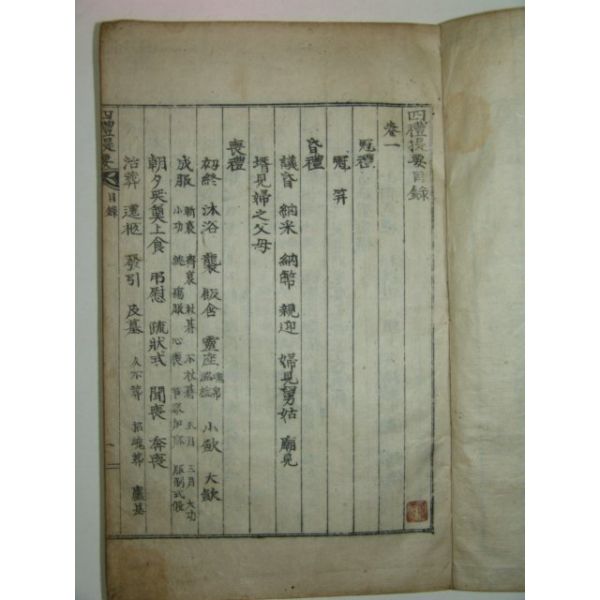 四禮提要目錄
卷一
冠禮
冠 笄
昏禮
議昏 納采 納幣 親迎 婦見舅姑 廟見
壻見婦之父母
喪禮
初終 沐浴 襲 飯含 靈座 小歛 大歛
成服 斬衰 齊衰 杖朞 不杖朞 五月 三月 大功
小功 緦 殤服 心喪 服制式假
朝夕哭奠上食 弔慰 疏狀式 聞喪 奔喪
治葬 遷柩 發引 及墓 久不葬 招魂葬 廬墓
四禮提要 目錄 一